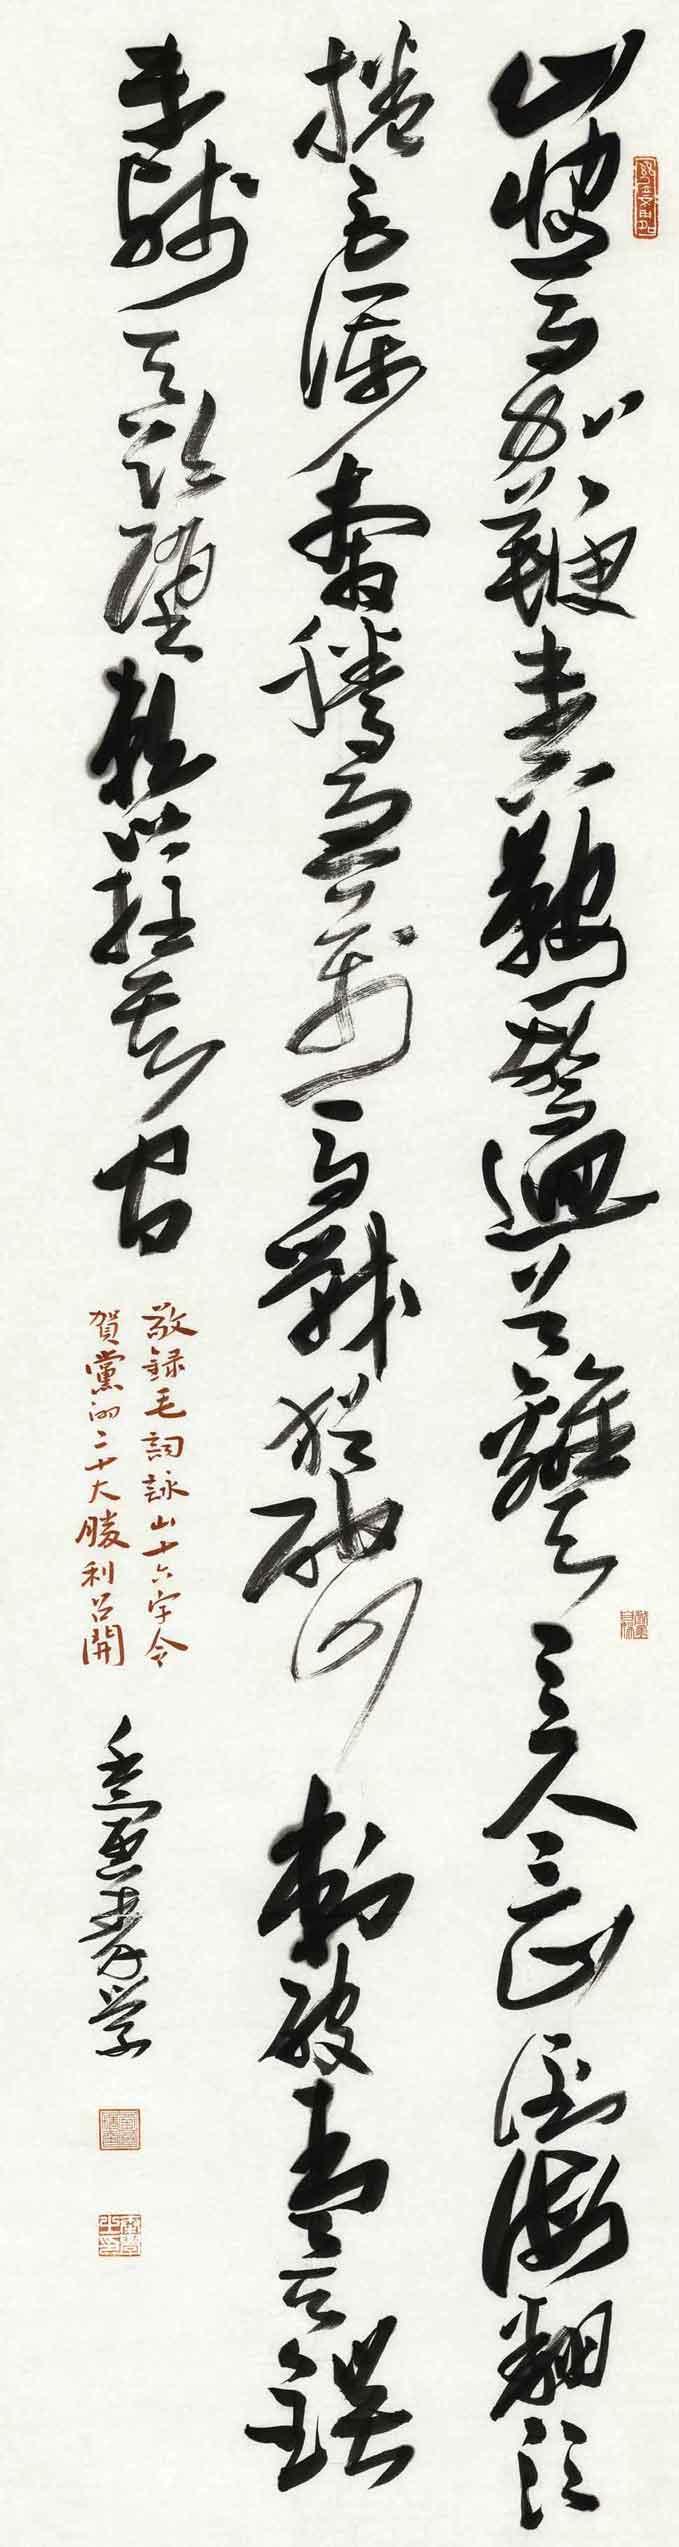 山快馬加鞭未下鞍驚迴首離天三尺三山倒海翻江
捲巨瀾奔騰急萬馬戰猶酣山刺破青天鍔
未殘天欲墮賴以拄其間
敬録毛詞詠山十六字令
賀黨的二十大勝利召開